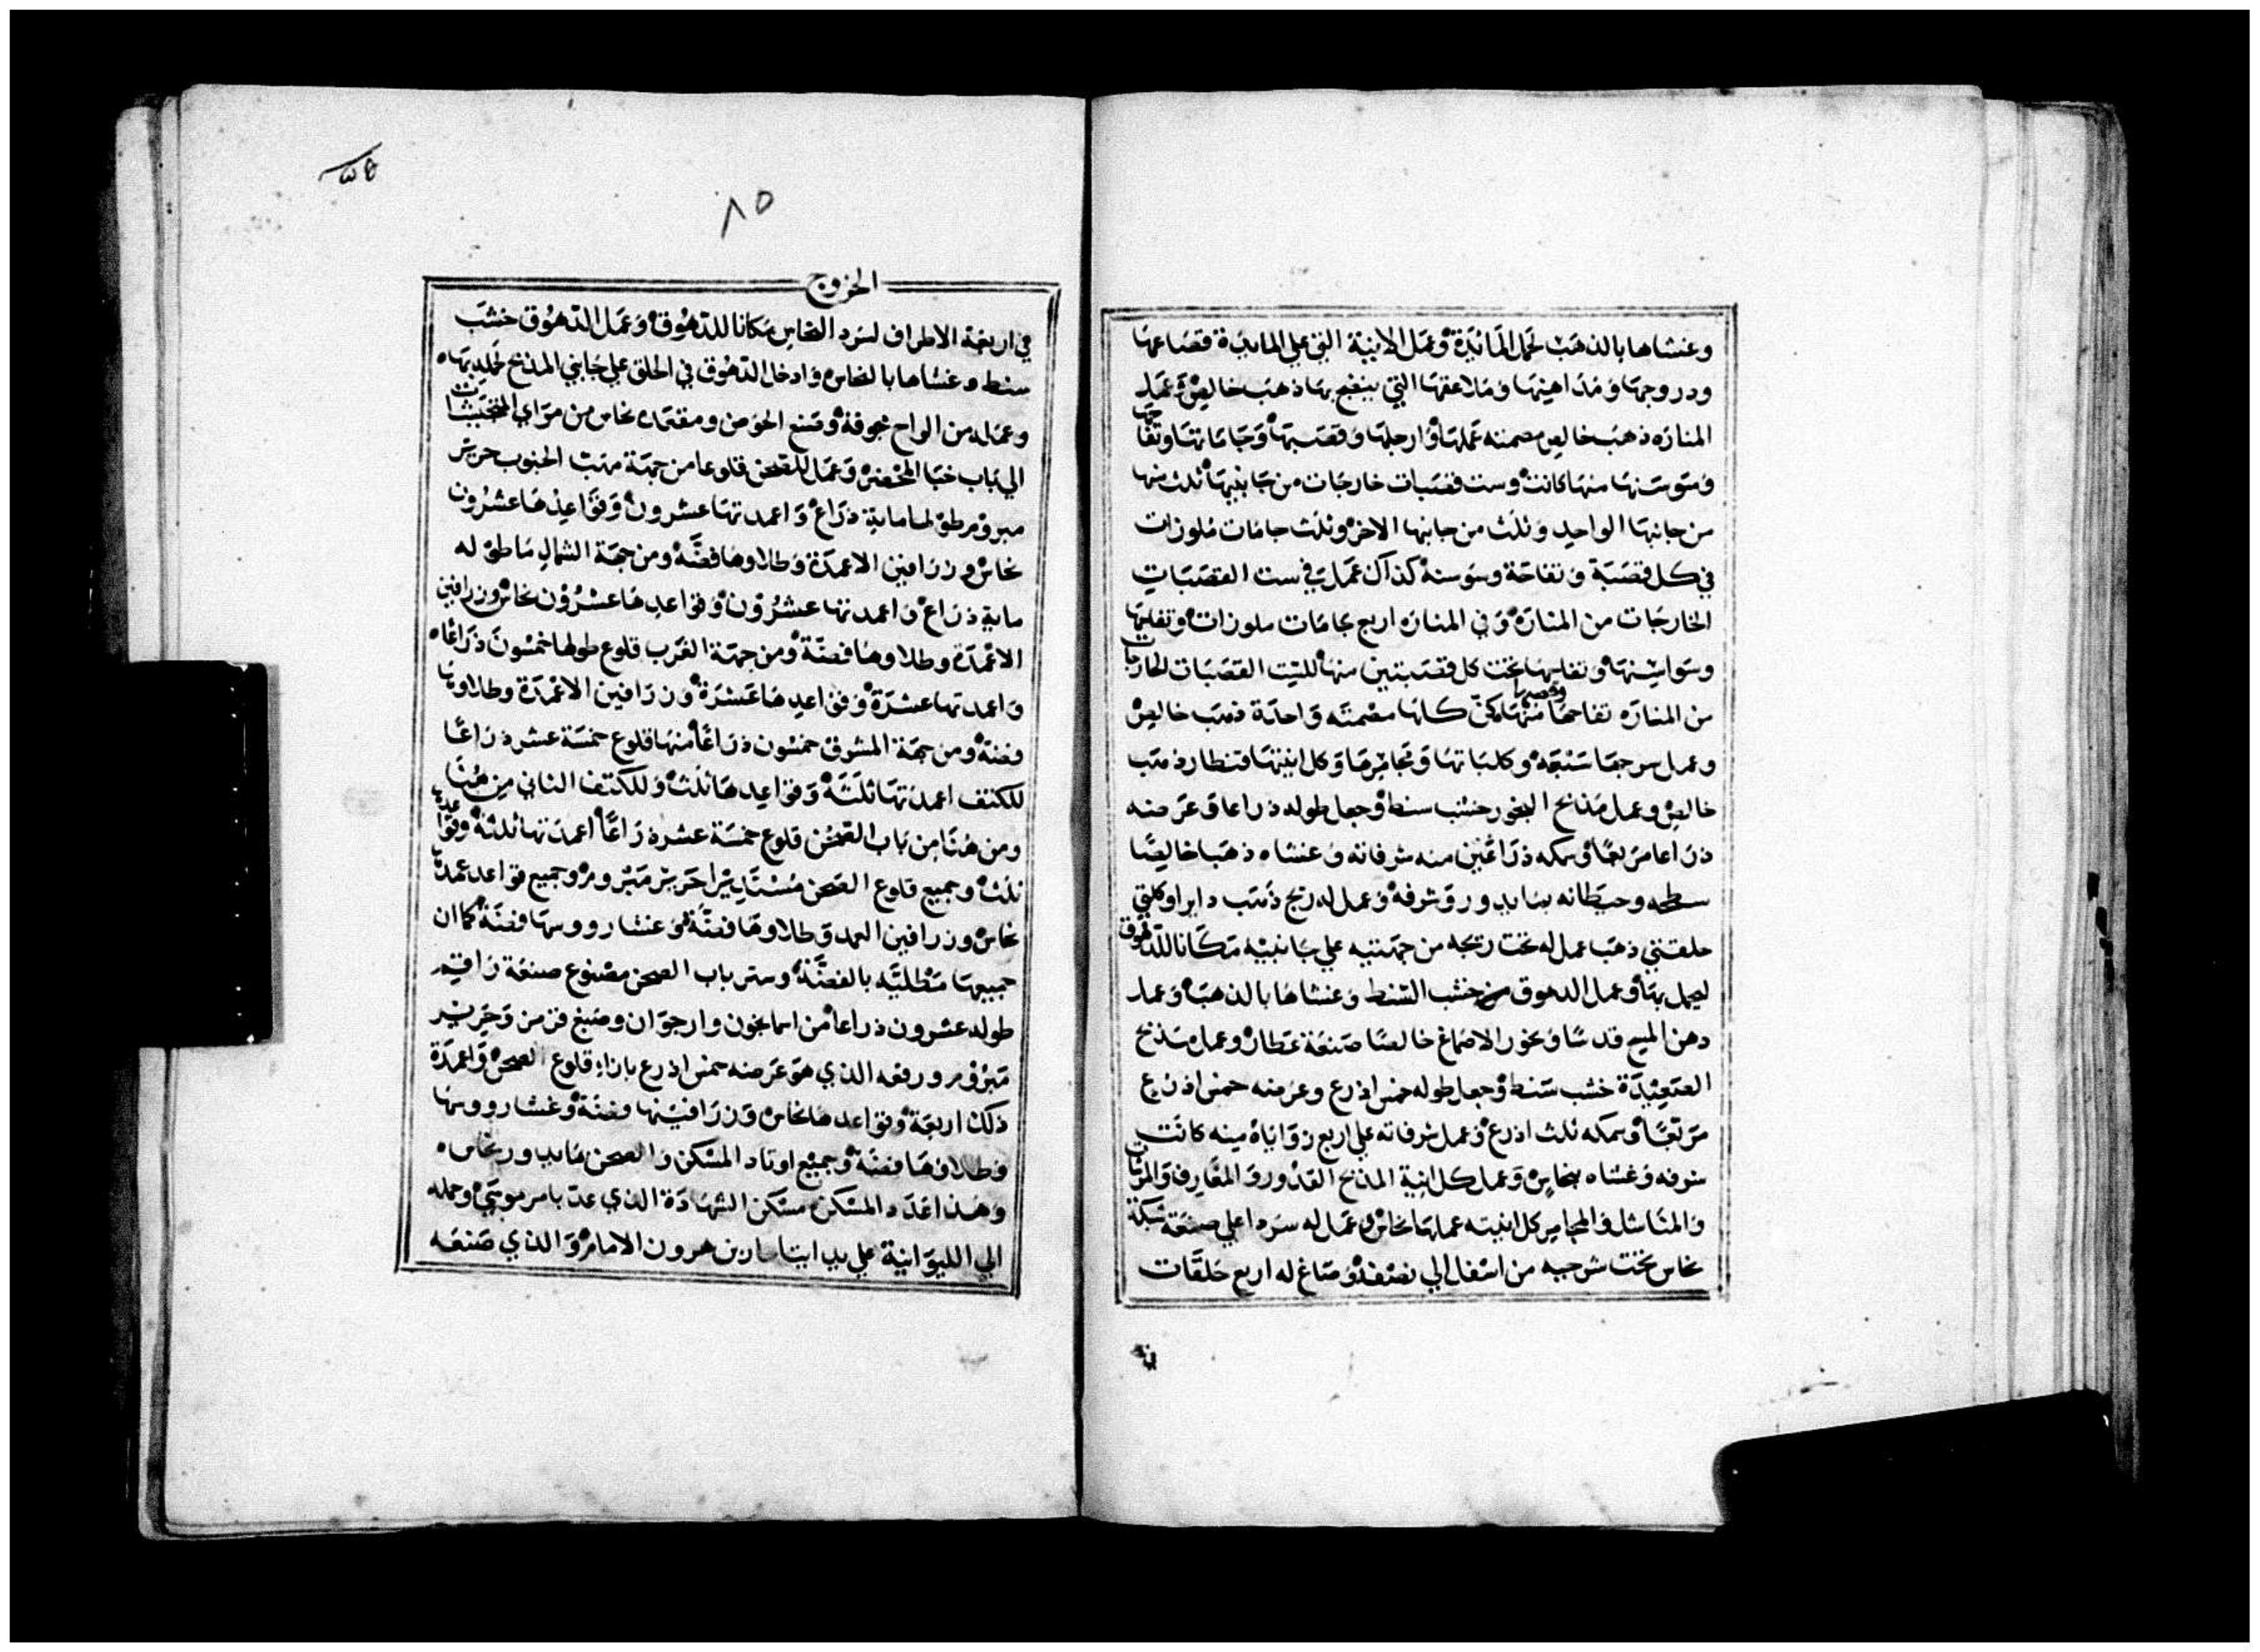 وغشاها بالذهب لحمل المائدة وعمل الانية التي علي المايدة قصاعها
ودروجها ومداهينها وملاعقها التي ينضح بها ذهب خالص وعمل
المناره ذهب خالص مصمته عملها وارجلها وقصبتها وجاماتها وتفاحها
وسوسنها منها كانت وست قصبات خارجات من جانبيها ثلث منها
من جانبها الواحد وثلث من جانبها الاخر وثلث جامات ملوزات
في كل قصبة وتفاحة وسوسنة كذاك عمل في ست القصبات
الخارجات من المناره وفي المناره اربع جامات ملوزات وتفاحها
وسواسنها وتفاحها تحت كل قصبتين منها للست القصبات الخارجات
من المناره تفاحها وقصبها منها كن كلها مصمته واحدة ذهب خالص
وعمل سرجها سبعة وكلباتها ومجامرها وكل انيتها قنطار ذهب
خالص وعمل مذبح البخور خشب سنط وجعل طوله ذراعا وعرضه
ذراعا مربعا وسمكه ذراعين منه شرفاته وغشاه ذهبا خالصا
سطحه وحيطانه بمايدور وشرفه وعمل له زيج ذهب دايرا وكلتي
حلقتي ذهب عمل له تحت زيجه من جهتيه علي جانبيه مكانا للدهوق
ليحمل بها وعمل الدهوق من خشب السنط وغشاها بالذهب وعمل
دهن المسح قدسا وبخور الاصماغ خالصا صنعة عطار وعمل مذبح
الصعيدة خشب سنط وجعل طوله خمس اذرع وعرضه خمس اذرع
مربعا وسمكه ثلث اذرع وعمل شرفاته علي اربع زواياه منه كانت
شرفه وغشاه بنحاس وعمل كل انية المذبح القدور والمغارف والمزتان
والمناشل والمجامر كل انيته عملها نحاس وعمل له سردا علي صنعة شبكة
نحاس تحت شرجبه من اسفل الي نصفه وصاغ له اربع حلقات
٨٥
الخروج
في اربعة الاطراف لسرد النحاس مكانا للدهوق وعمل الدهوق خشب
سنط وغشاها بالنحاس وادخل الدهوق في الحلق علي جانبي المذبح لحمله بها
وعمله من الواح مجوفة وصنع الحوض ومقتمده نحاس من مراي المنتخبات
الي باب خبا المحضر وعمل للصحن قلوعا من جهة مهب الجنوب حرير
مبروم طولها ماية ذراع واعمدتها عشرون وقواعدها عشرون
نحاس وزرافين الاعمدة وطلاوها فضة ومن جهة الشمال ما طوله
ماية ذراع واعمدتها عشرون وقواعدها عشرون نحاس وزرافين
الاعمدة وطلاوها فضة ومن جهة الغرب قلوع طولها خمسون ذراعا
واعمدتها عشرة وقواعدها عشرة وزرافين الاعمدة وطلاوها
فضة ومن جهة المشرق خمسون ذراعا منها قلوع خمسة عشر ذراعا
للكتف اعمدتها ثلثة وقواعدها ثلث وللكتف الثاني من هنا
ومن هنا من باب الصحن قلوع خمسة عشر ذراعا اعمدتها ثلثة وقواعدها
ثلث وجميع قلوع الصحن مستديرا حرير مبروم وجميع قواعد عمدها
نحاس وزرافين العمد وطلاوها فضة وغشا رووسها فضة كما ان
جميعها مطلية بالفضة وستر باب الصحن مصنوع صنعة راقم
طوله عشرون ذراعا من اسمانجون وارجوان وصبغ قرمز وحرير
مبروم ورفعه الذي هو عرضه خمس اذرع بازاء قلوع الصحن واعمدة
ذلك اربعة وقواعدها نحاس وزرافينها فضة وغشا رووسها
وطلاوها فضة وجميع اوتاد المسكن والصحن مايدور نحاس
وهذا عدد المسكن مسكن الشهادة الذي عد بامر موسي وحمله
الي الليوانية علي يد ايتامار بن هرون الامام والذي صنعه